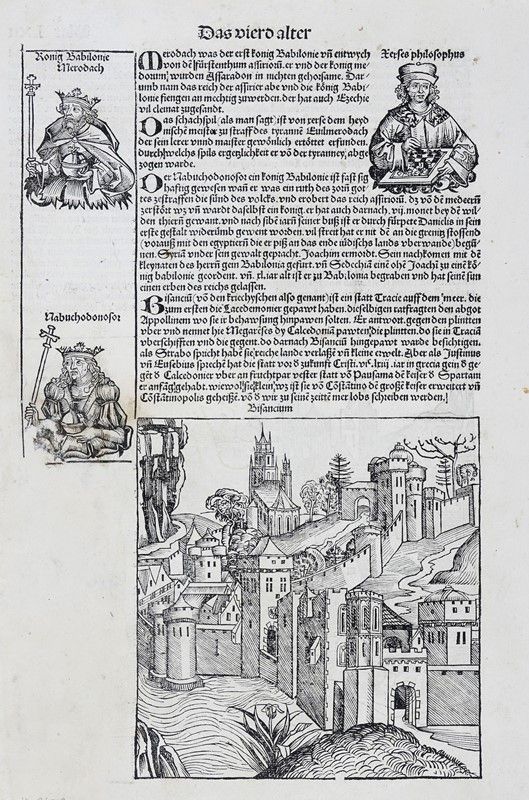 Das vierd alter
König Babilonie
Merodach
Xerses philosophus
Merodach was der erst konig Babilonie vñ entwych
von dē fürstenthum assiriorū. er vnd der konig me
dorum, wurden Assaradon in nichten gehorsame. Dar-
umb nam das reich der assirier abe vnd die könig Babi-
lonie fiengen an mechtig zuwerden. der hat auch Ezechie
vil clemat zugesandt.
Das schachspil (als man sagt) ist von xerse dem heyd
nischē meister zu straff des tyrannē Euilmerodach
der sein lerer vnnd maister gewönlich ertöttet erfunden.
durch welchs spils ergetzlichkeit er vō der tyranney, abge
zogen warde.
Der Nabuchodonosor ein konig Babilonie ist fast sig
haftig gewesen wañ er was ein ruth des zorn got
tes zestraffen die sünd des volcks. vnd erobert das reich assiriorū. dz vō dē medeern
zerstört wz vñ warde daselbst ein konig. er hat auch darnach. vij. monet bey dē wil-
den thiern gewant. vnd nach sibē iarn seiner buß ist er durch fürpete Danielis in sein
erste gestalt widerumb gewent worden. vil streit hat er nit dē an die grenitz stossend
(vorauß mit den egyptiern die er piß an das ende iüdischs lands vberwande) begü-
nen. Syriā vnder sein gewalt gepracht. Joachim ermordt. Sein nachkomen mit dē
kleynaten des herrn gein Babilonia gefürt. vñ Sedechiā eine ohē Joachī zu einē kö-
nig babilonie geordent. vñ. xl. iar alt ist er zu Babilonia begraben vnd hat seinē sun
einen erben des reichs gelassen.
Bisanciū (vō den kriechyschen also genant) ist ein statt Tracie auff dem meer. die
zum ersten die Lacedemonier gepawt haben. dieselbigen ratfragten den abgot
Appollinem wo sie ir behawsung hinpawen solten. Er antwort. gegen den plintten
vber vnd nemet hie Megareses dy Calcedoniā pawten die plintten. do sie in Traciā
vberschifften vnd die gegent. do darnach Bisanciū hingepawt warde besichtigen.
als Strabo spricht habē sie reiche lande verlaßē vñ kleine erwelt. Aber als Justinus
vñ Eusebius sprechē hat die statt vor d zukunft Cristi. vjc. lxij. iar in grecia gein d ge-
gēt d Calcedonier vber an fruchtpar vester statt vō Pausama dē keiser d Spartani
er anfāg gehabt. wiewol sie klein wz ist sie vō Cōstātino dē große keiser erweitert vñ
Cōstātinopolis geheißē. vō d wir zu seinē zeitē mer lobs schreiben werden.
Nabuchodonosor
Bisancium